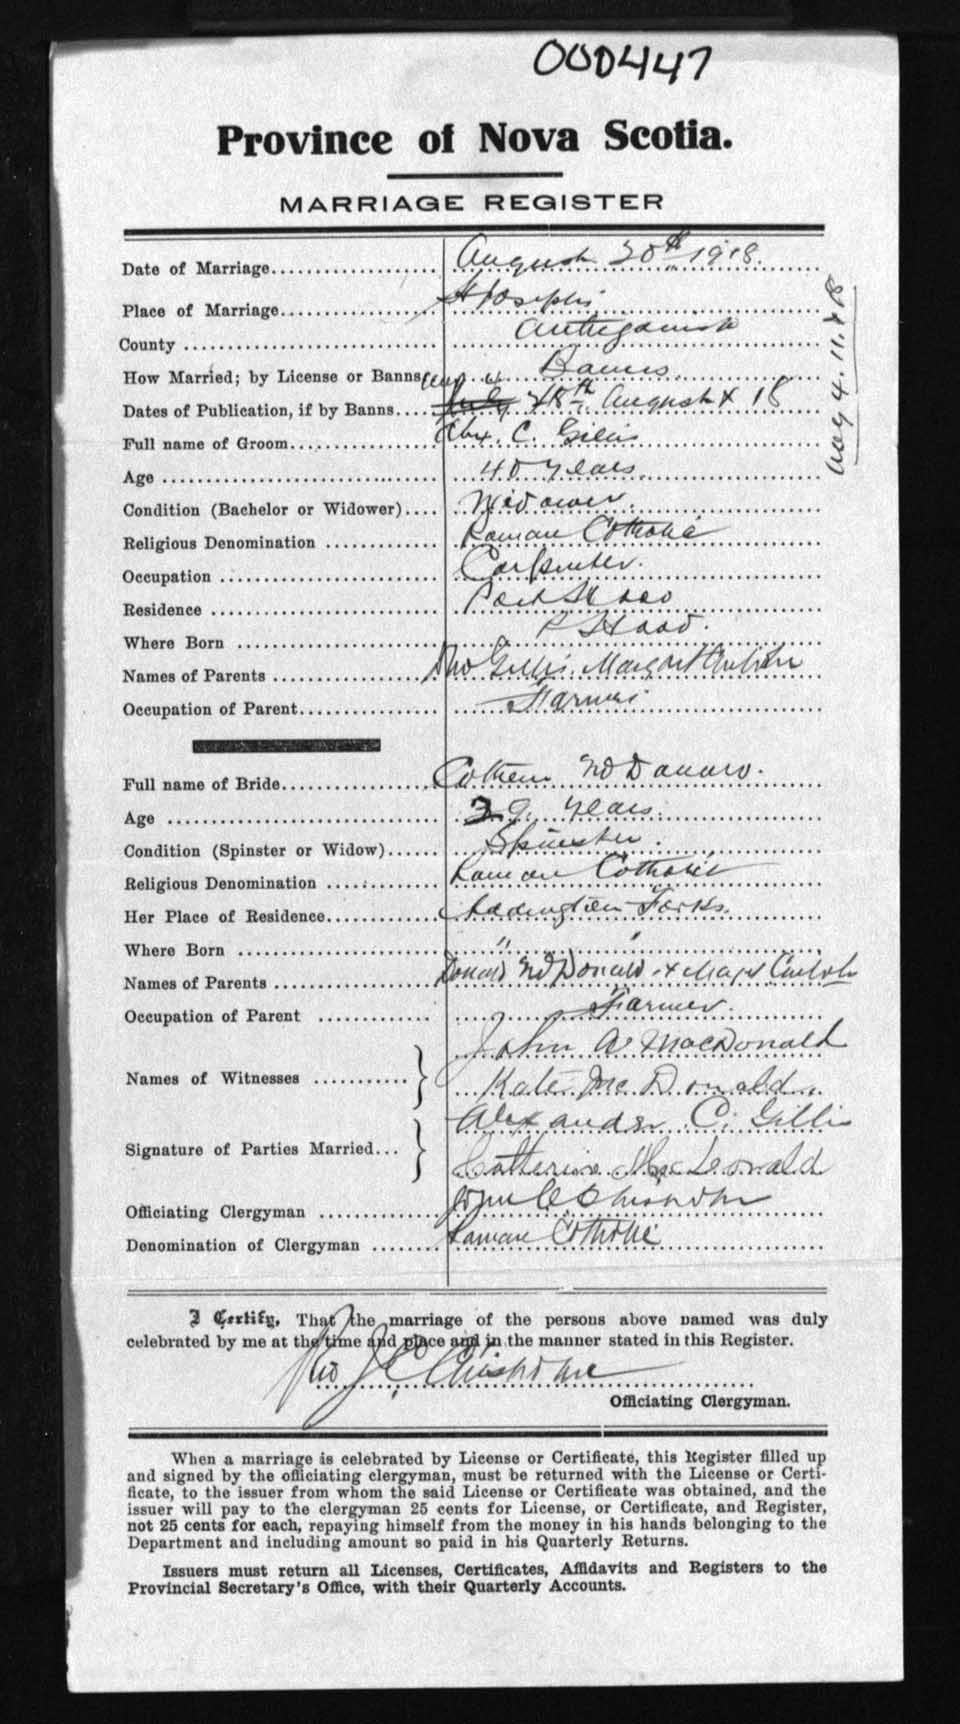 000447
Province of Nova Scotia.
MARRIAGE REGISTER
Date of Marriage.................... August 20th 1918.
Place of Marriage.................. St Josephs
County ............................ Antigonish
How Married; by License or Banns Banns
Dates of Publication, if by Banns.... August 18
Aug 4. 11. & 18
Full name of Groom.................. Alex. C. Gillis
Age ............................... 40 years.
Condition (Bachelor or Widower).... Widower.
Religious Denomination ............ Roman Catholic
Occupation ........................ Carpenter.
Residence ......................... Port Hood
Where Born ........................ P Hood.
Names of Parents .................. Gillis. Margret
Occupation of Parent................ Farmer
Full name of Bride.................. McDonald.
Age ............................... 39 years.
Condition (Spinster or Widow)...... Spinster.
Religious Denomination ............ Roman Catholic
Her Place of Residence............. Addington Forks.
Where Born ........................ " "
Names of Parents .................. Donald McDonald &
Occupation of Parent .............. Farmer.
Names of Witnesses ........... } John A. MacDonald
Kate Mc Donald.
Signature of Parties Married... } Alexander C. Gillis
Catherine MacDonald
Officiating Clergyman ............. John C Chisholm
Denomination of Clergyman ........ Roman Catholic
I Certify, That the marriage of the persons above named was duly
celebrated by me at the time and place and in the manner stated in this Register.
Rev J. C. Chisholm
Officiating Clergyman.
When a marriage is celebrated by License or Certificate, this Register filled up
and signed by the officiating clergyman, must be returned with the License or Certi-
ficate, to the issuer from whom the said License or Certificate was obtained, and the
issuer will pay to the clergyman 25 cents for License, or Certificate, and Register,
not 25 cents for each, repaying himself from the money in his hands belonging to the
Department and including amount so paid in his Quarterly Returns.
Issuers must return all Licenses, Certificates, Affidavits and Registers to the
Provincial Secretary's Office, with their Quarterly Accounts.